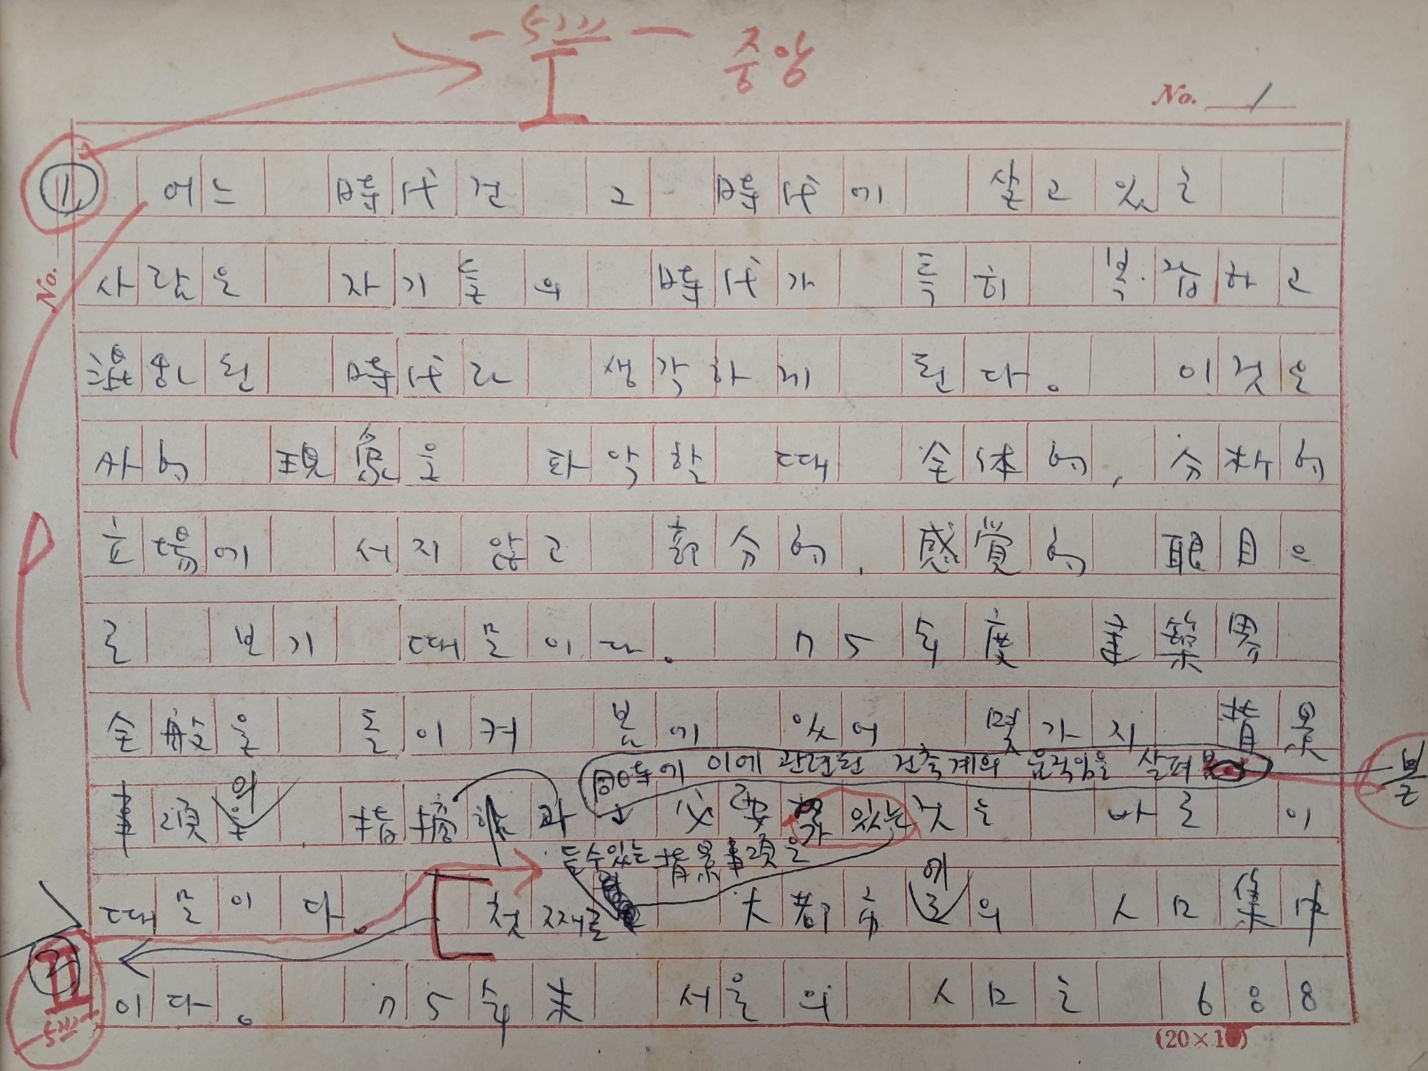 5행
I 중앙
No. 1
① 어느 時代건 그 時代에 살고 있는
No.
사람은 자기들의 時代가 특히 복잡하고
混乱된 時代라 생각하게 된다. 이것은
사的 現象을 파악할 때 全体的, 分析的
立場에 서지 않고 部分的, 感覚的 眼目으
로 보기 때문이다. 75年度 建築界
全般을 돌이켜 봄에 있어 몇가지 背景
同時에 이에 관련된 건축계의 움직임을 살펴 볼
事項의 指摘 과 必要가 있는 것은 바로 이
들 수 있는 背景事項은
때문이다. 첫째로 大都市에로의 人口集中
② II 5행
이다. 75年末 서울의 人口는 688
(20×10)